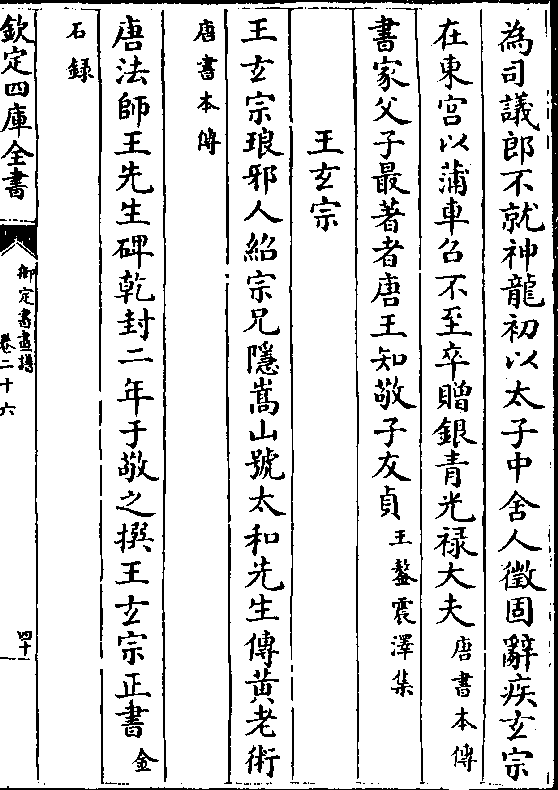 為司議郎不就神龍初以太子中舍人徵固辭疾玄宗
在東宮以蒲車召不至卒贈銀青光禄大夫唐書本傳
書家父子最著者唐王知敬子友貞王鏊震澤集
王玄宗
王玄宗琅邪人紹宗兄隱嵩山號太和先生傳黃老術
唐書本傳
唐法師王先生碑乾封二年于敬之撰王玄宗正書金
石録
欽定四庫全書
御定書畫譜
卷二十六
四十